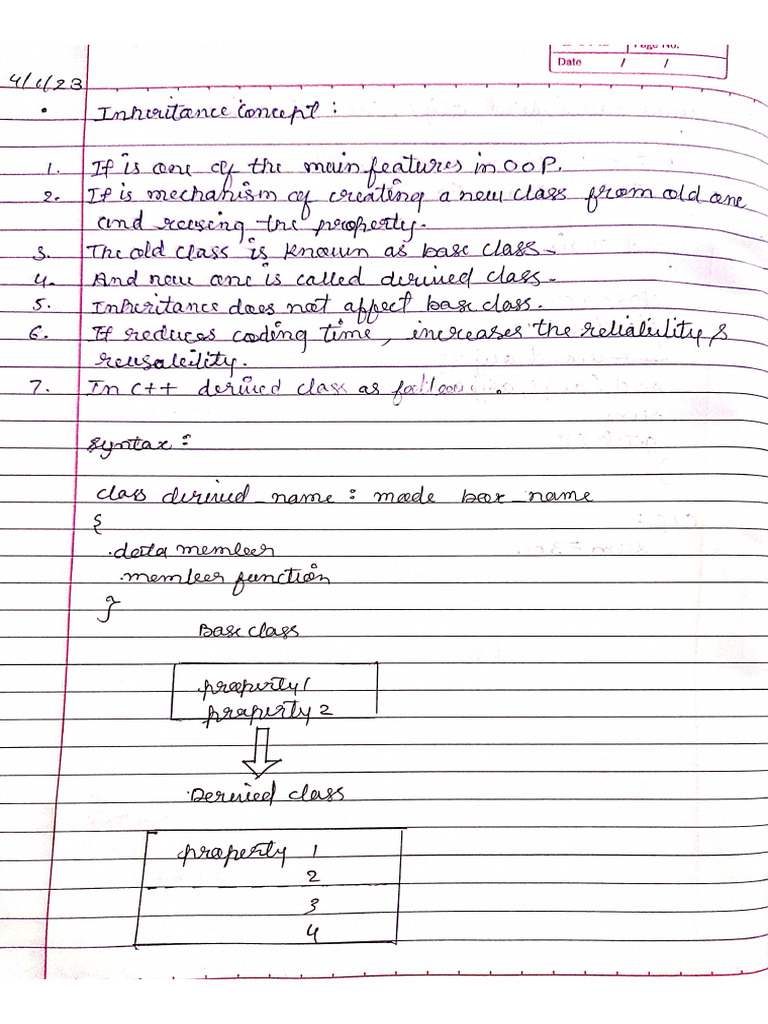 Page No.
Date / /
4/1/23
• Inheritance Concept :
1. It is one of the main features in OOP.
2. It is mechanism of creating a new class from old one
and reusing the property.
3. The old class is known as base class.
4. And new one is called derived class.
5. Inheritance does not affect base class.
6. It reduces coding time, increases the reliability &
reusability.
7. In C++ derived class as follow .
Syntax :
class derived_name : mode _name
{
.data member
.member function
}
Base class
property 1
property 2
Derived class
property 1
2
3
4